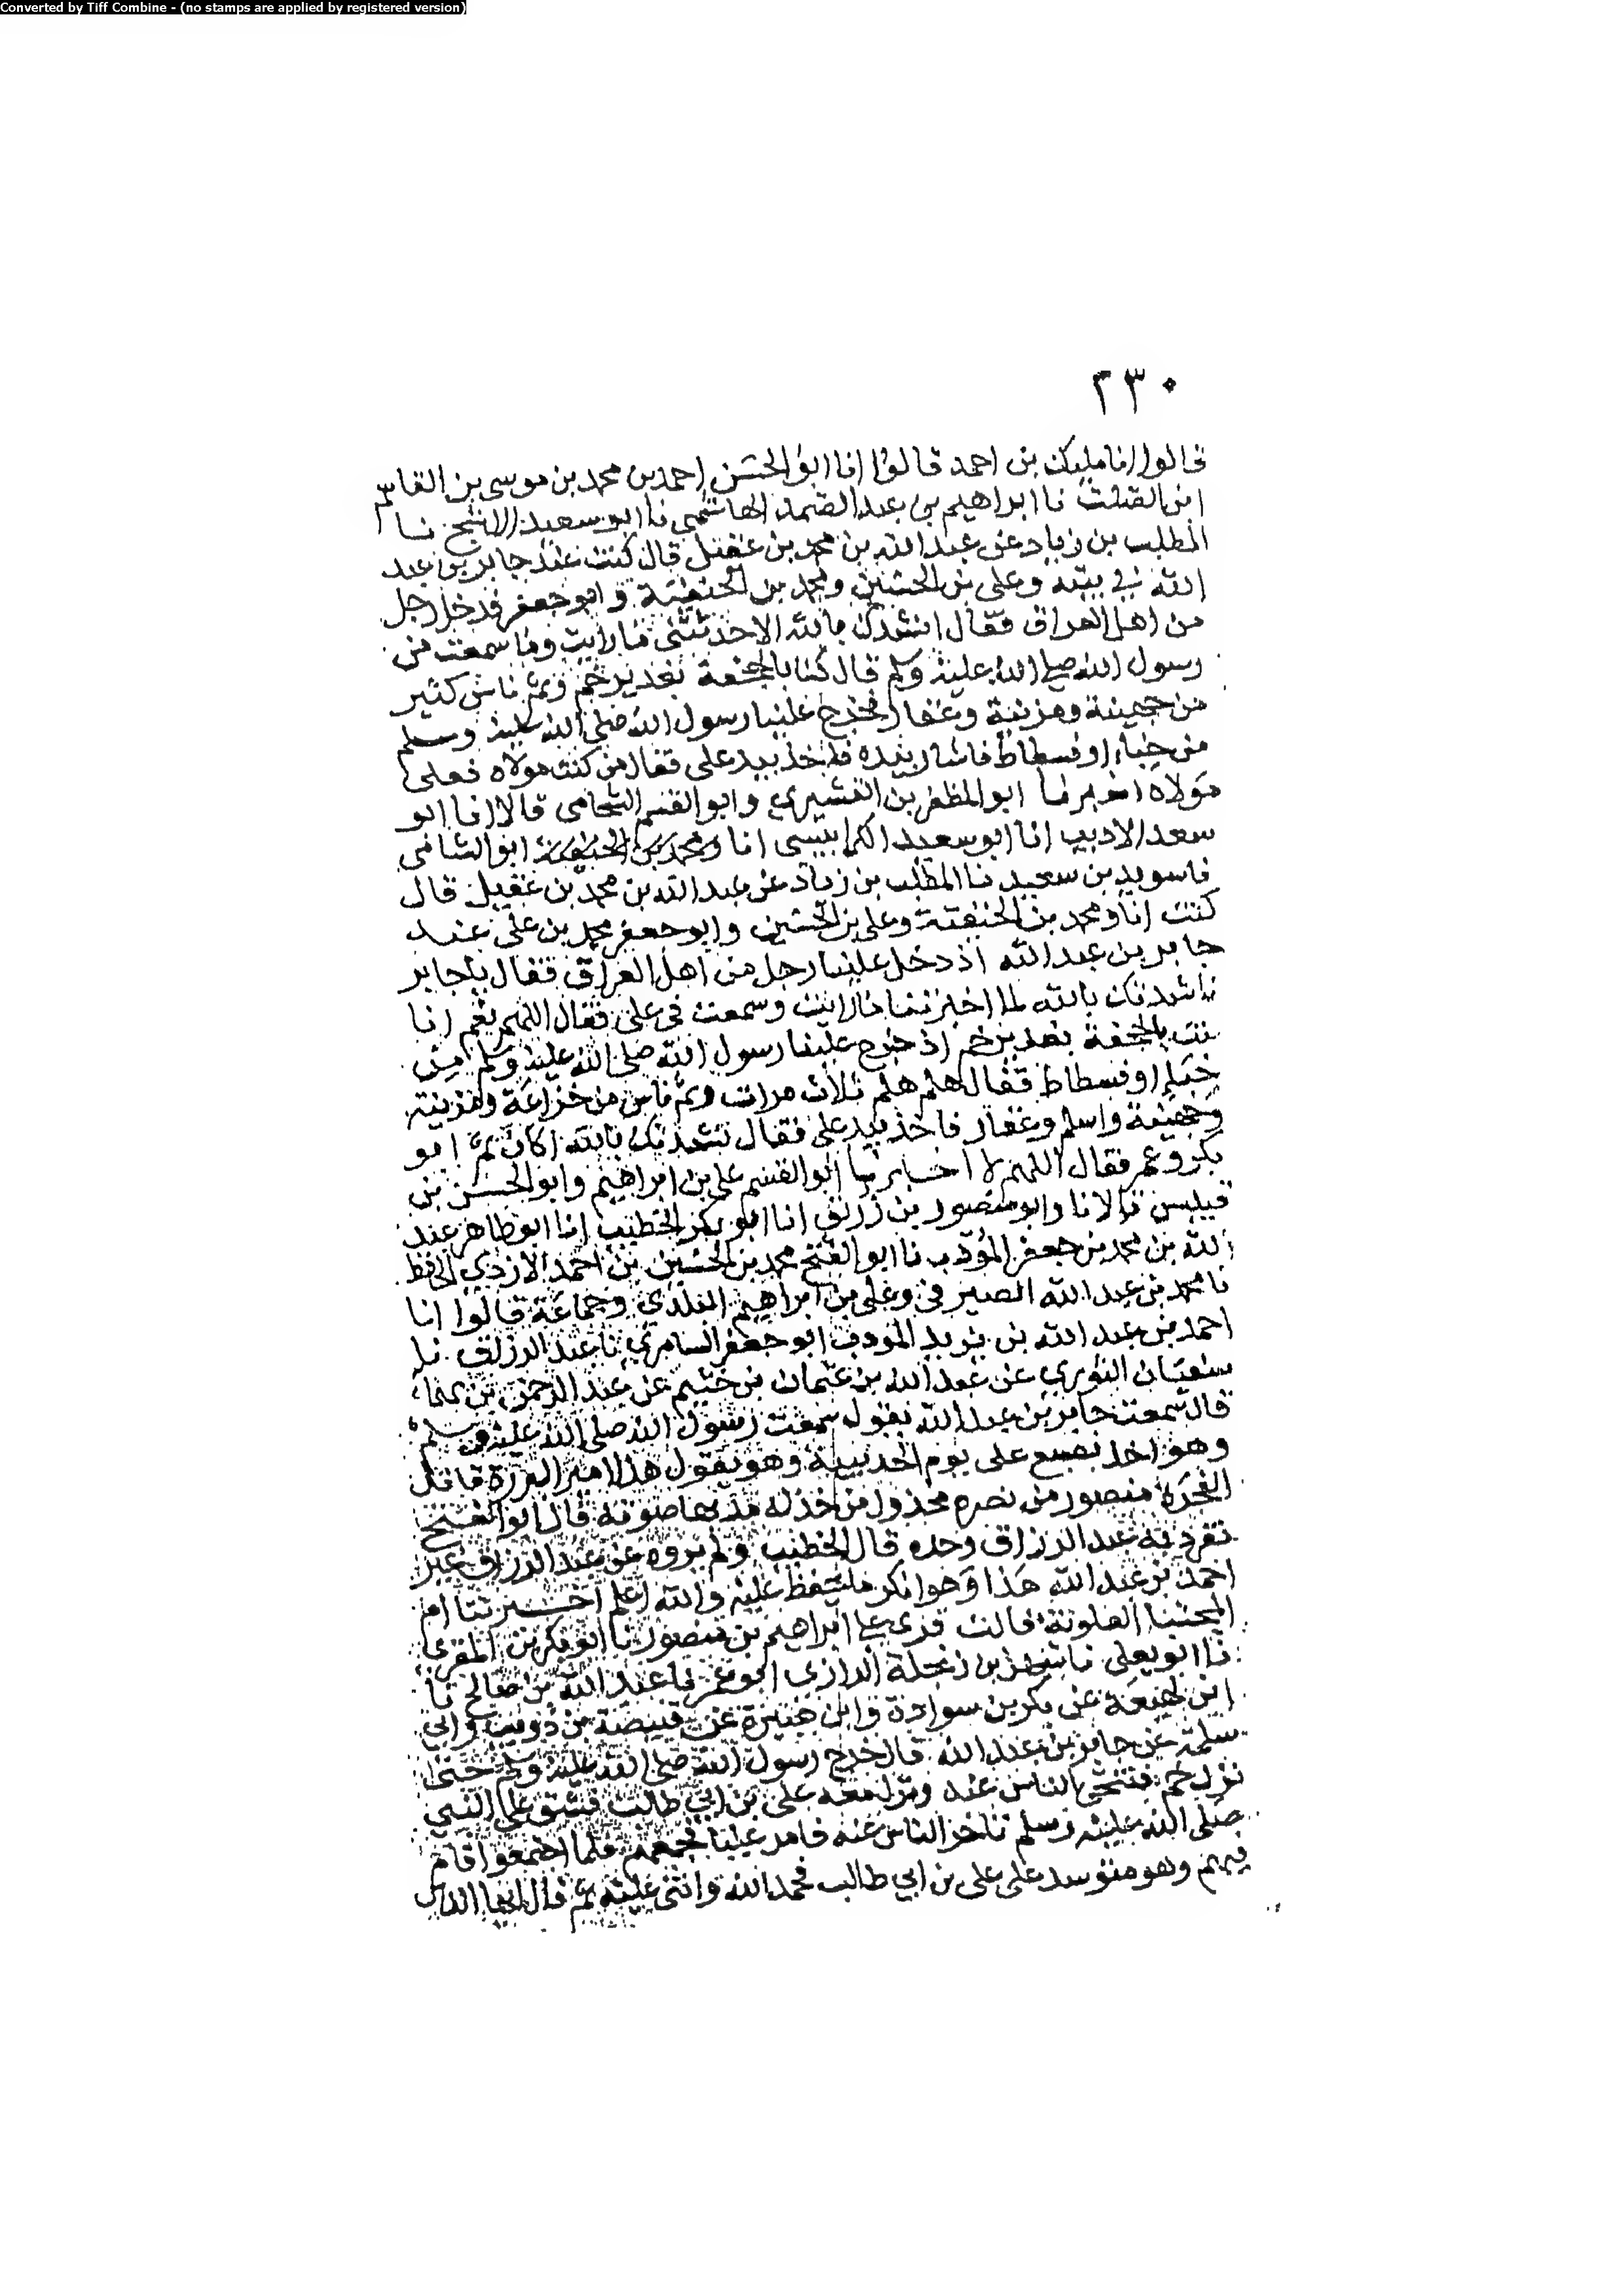 Converted by Tiff Combine - (no stamps are applied by registered version)
٢٣٠
قالوا انا مليك بن احمد قالوا انا ابو الحسن احمد بن محمد بن موسى بن القاسم
ابن الصلت نا ابراهيم بن عبد الصمد الهاشمي نا ابو سعيد الاشج نا
المطلب بن زياد عن عبد الله بن محمد بن عقيل قال كنت عند جابر بن عبد
الله في بيته وعلي بن الحسين ومحمد بن الحنفية وابو جعفر فدخل رجل
من اهل العراق فقال انشدك بالله الا حدثتني ما رايت وما سمعت من
رسول الله صلى الله عليه وسلم قال كنا بالجحفة بغدير خم وثم ناس كثير
من جهينة ومزينة وغفار فخرج علينا رسول الله صلى الله عليه وسلم
من خباء او فسطاط فاشار بيده فاخذ بيد علي فقال من كنت مولاه فعلي
مولاه اخبرنا ابو المظفر بن القشيري وابو القسم الشحامي قالا انا ابو
سعد الاديب انا ابو سعيد الكرابيسي انا ومحمد بن الحنفية ابو الشامي
نا سويد بن سعيد نا المطلب بن زياد عن عبد الله بن محمد بن عقيل قال
كنت انا ومحمد بن الحنفية وعلي بن الحسين وابو جعفر محمد بن علي عند
جابر بن عبد الله اذ دخل علينا رجل من اهل العراق فقال يا جابر
ناشدتك بالله لما اخبرتنا ما رايت وسمعت في علي فقال اللهم نعم انا
بالجحفة بغدير خم اذ خرج علينا رسول الله صلى الله عليه وسلم من
خباء او فسطاط فقال هلم هلم ثلاث مرات وثم ناس من خزاعة ومزينة
وجهينة واسلم وغفار فاخذ بيد علي فقال نشدتك بالله اكان ثم ابو
بكر وعمر فقال اللهم لا اخبرنا ابو القسم علي بن ابراهيم وابو الحسن بن
قبيس قالا نا وابو منصور بن زريق انا ابو بكر الخطيب انا ابو طاهر عبد
الله بن محمد بن جعفر المؤدب نا ابو الفتح محمد بن الحسين بن احمد الازدي الحافظ
نا محمد بن عبد الله الصيرفي وعلي بن ابراهيم البلدي وجماعة قالوا انا
احمد بن عبد الله بن يزيد المودب ابو جعفر السامري نا عبد الرزاق نا
سفيان الثوري عن عبد الله بن عثمان بن خثيم عن عبد الرحمن بن
قال سمعت جابر بن عبد الله يقول سمعت رسول الله صلى الله عليه وسلم
وهو اخذ بضبع علي يوم الحديبية وهو يقول هذا امير البررة قاتل
الفجرة منصور من نصره مخذول من خذله مد بها صوته قال ابو الفتح
تفرد به عبد الرزاق وحده قال الخطيب ولم يروه عن عبد الرزاق غير
احمد بن عبد الله هذا وهو انكر ما حفظ عليه والله اعلم اخبرتنا ام
المجتبا العلوية قالت قرئ على ابراهيم بن منصور نا ابو بكر بن المقرئ
نا ابو يعلى نا بن زنجلة الرازي ابو عمر نا عبد الله بن صالح نا
ابن لهيعة عن بكر بن سوادة وابن هبيرة عن قبيصة بن ذويب وابي
سلمة عن جابر بن عبد الله قال خرج رسول الله صلى الله عليه وسلم حتى
نزل خم فتنحى الناس عنه ونزل معه علي بن ابي طالب فشق على النبي
صلى الله عليه وسلم تاخر الناس عنه فامر عليا فجمعهم فلما اجتمعوا قام
فيهم وهو متوسد على علي بن ابي طالب فحمد الله واثنى عليه ثم قال ايها الناس